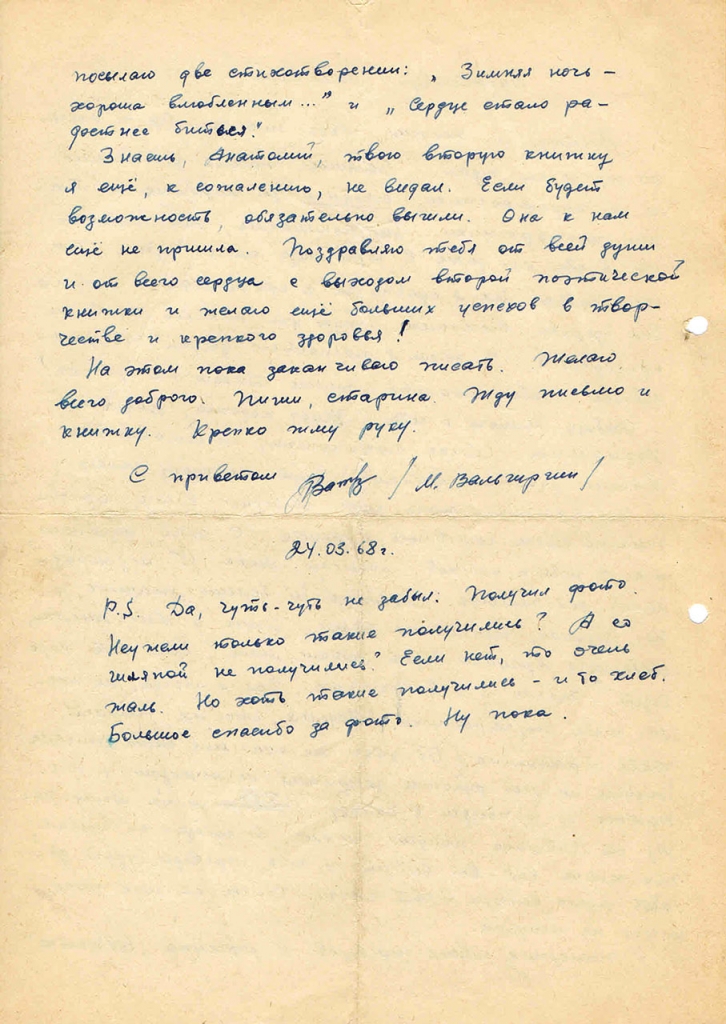 посылаю две стихотворении: „Зимняя ночь –
хороша влюбленным...” и „Сердце стало ра-
достнее биться.”
Знаешь, Анатолий, твою вторую книжку
я ещё, к сожалению, не видал. Если будет
возможность, обязательно вышли. Она к нам
ещё не пришла. Поздравляю тебя от всей души
и от всего сердца с выходом второй поэтической
книжки и желаю ещё больших успехов в твор-
честве и крепкого здоровья!
На этом пока заканчиваю писать. Желаю
всего доброго. Пиши, старина. Жду письмо и
книжку. Крепко жму руку.
С приветом / М. Вальгиргин /
24.03.68 г.
P.S. Да, чуть-чуть не забыл. Получил фото.
Неужели только такие получились? А со
шляпой не получились? Если нет, то очень
жаль. Но хоть такие получились – и то хлеб.
Большое спасибо за фото. Ну пока.